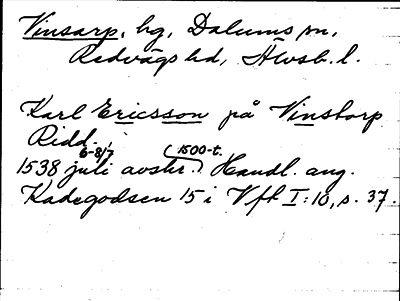 Vinsarp, hg, Dalums sn,
Redvägs hd, Älvsb. l.
Karl Ericsson på Vinstorp
Ridd.
1538 6-8/7 juli avskr. (1500-t.) Handl. ang.
Kadegodsen 15 i Vft I:10, s. 37.